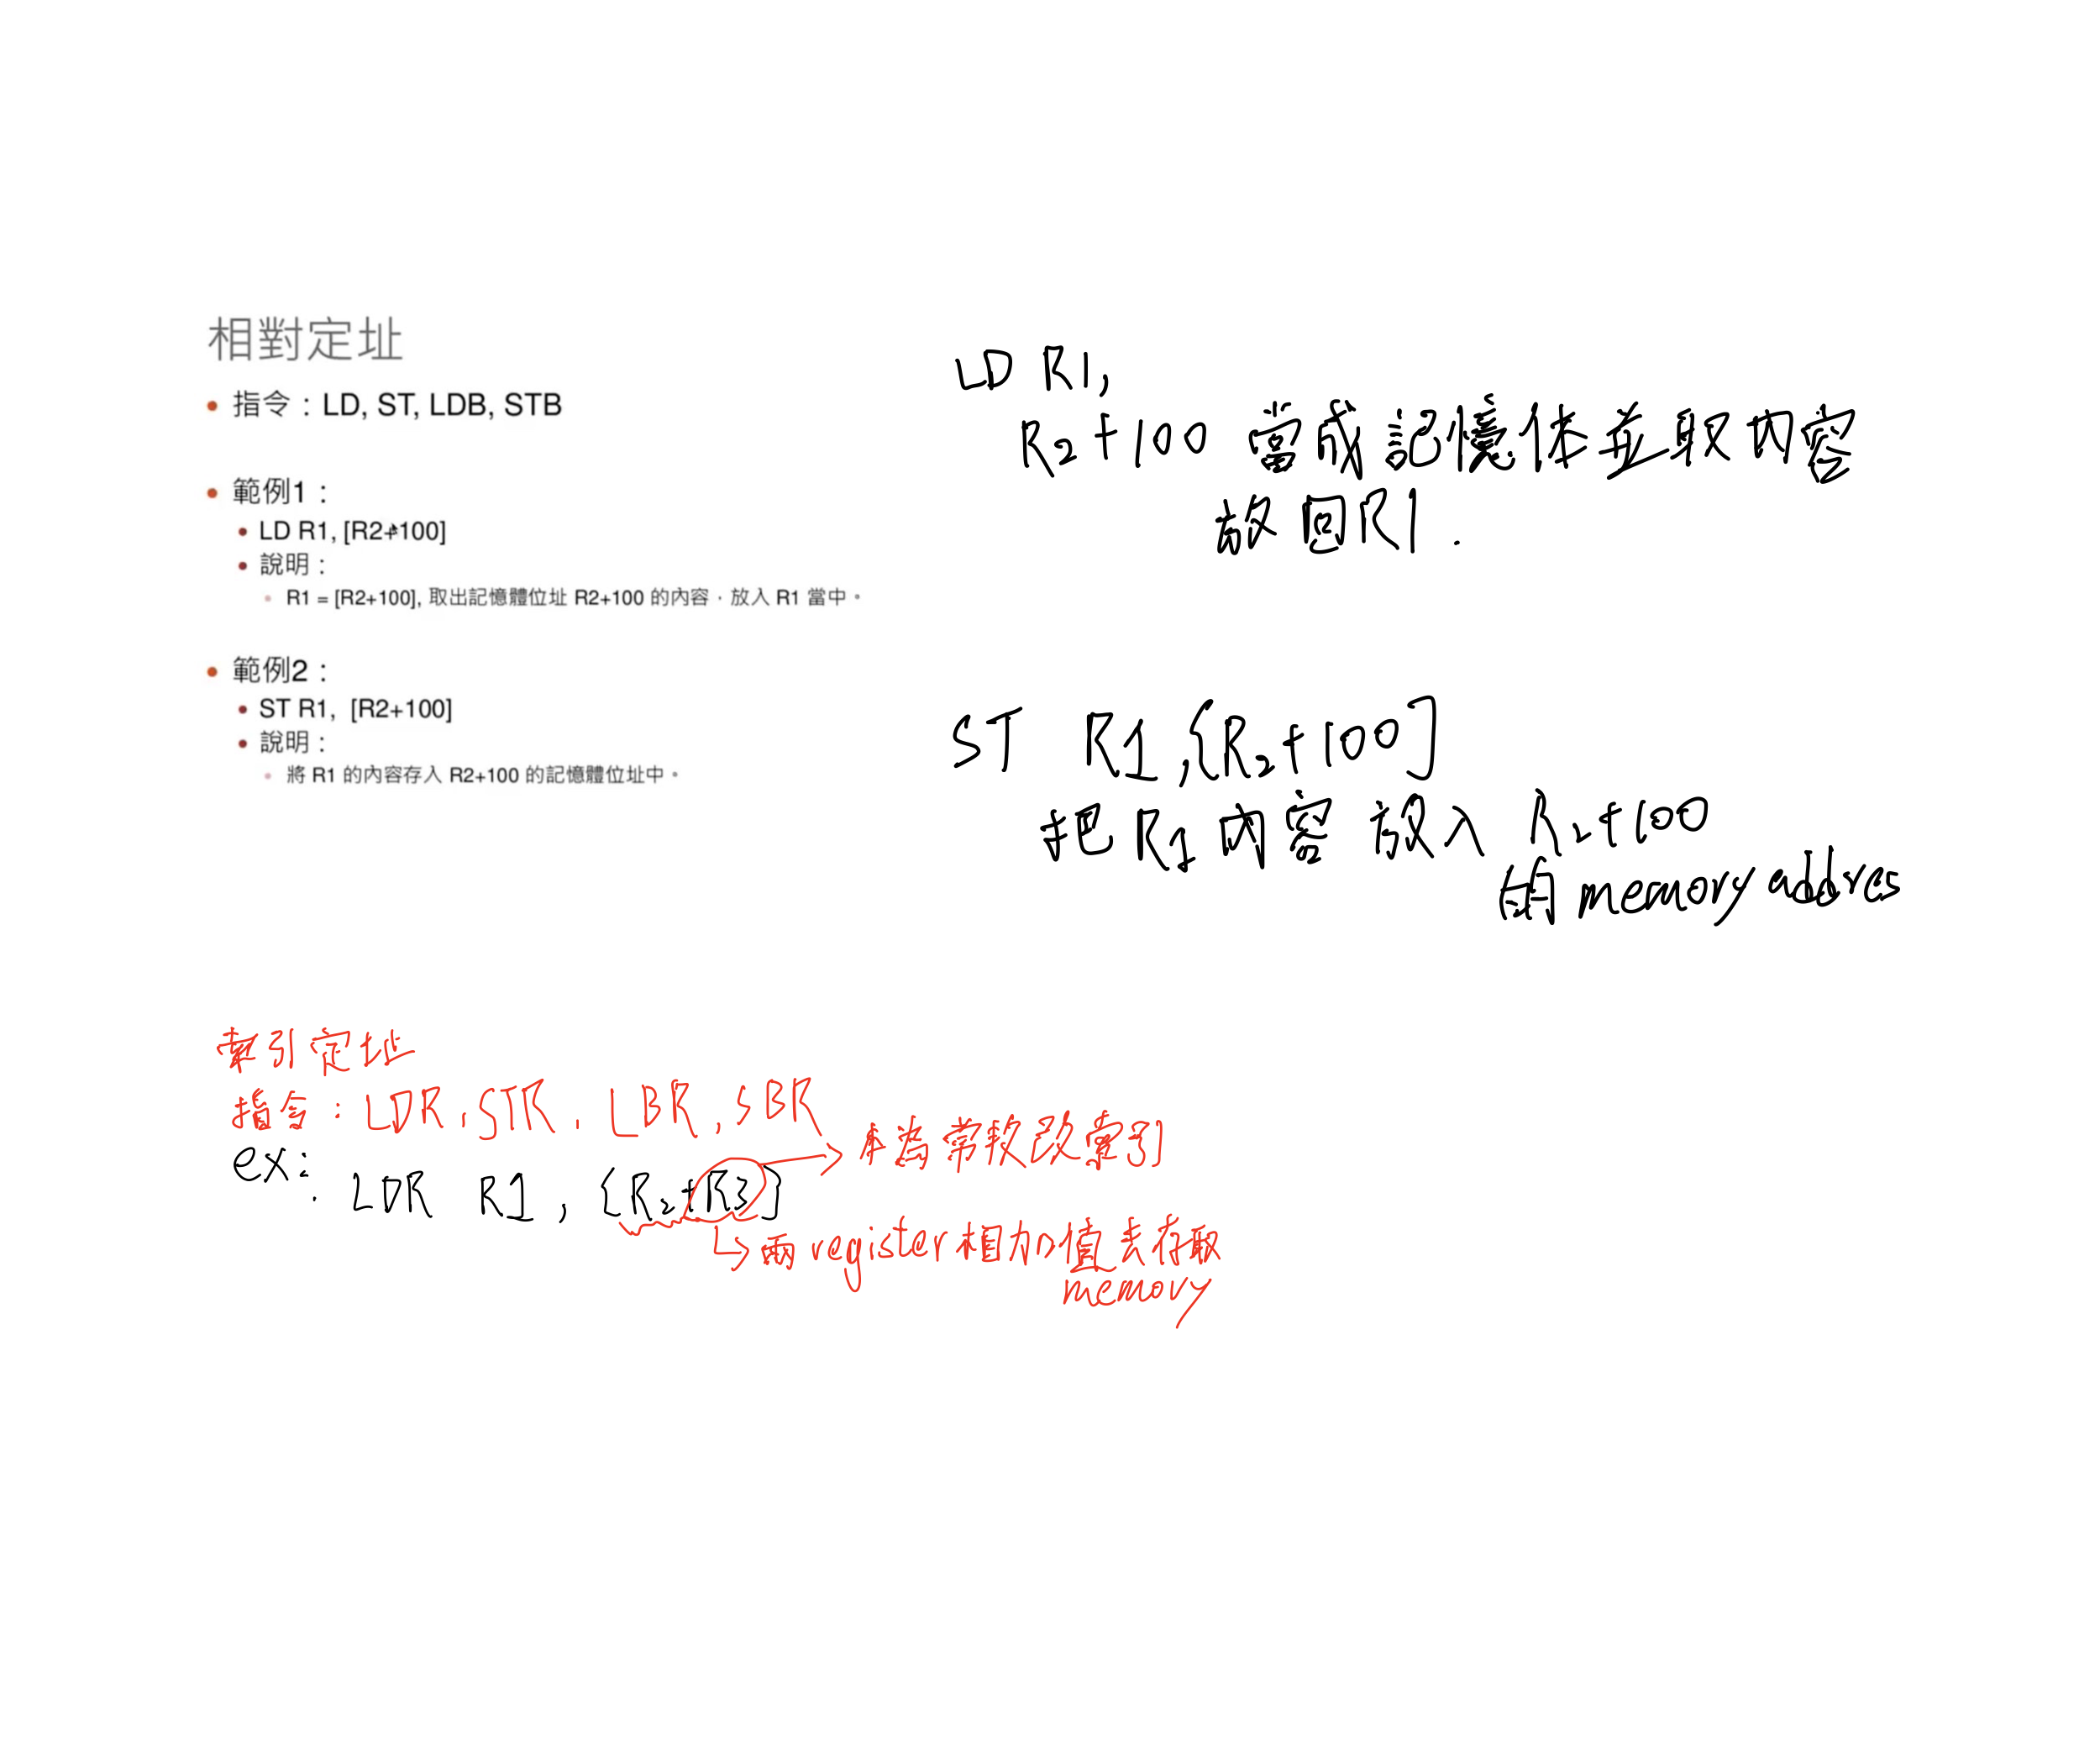 相對定址
指令：LD, ST, LDB, STB
範例1：
LD R1, [R2+100]
說明：
R1 = [R2+100], 取出記憶體位址 R2+100 的內容，放入 R1 當中。
範例2：
ST R1, [R2+100]
說明：
將 R1 的內容存入 R2+100 的記憶體位址中。
LD R1,
R2+100 當成記憶体並取內容
放回R1.
ST R1,[R2+100]
把R1內容放入 R2+100
的memory address
索引定址
指令：LDR, STR, LBR, SBR
ex:
LDR R1, [R2+R3]
本為常數改索引
兩register相加值去存取
memory